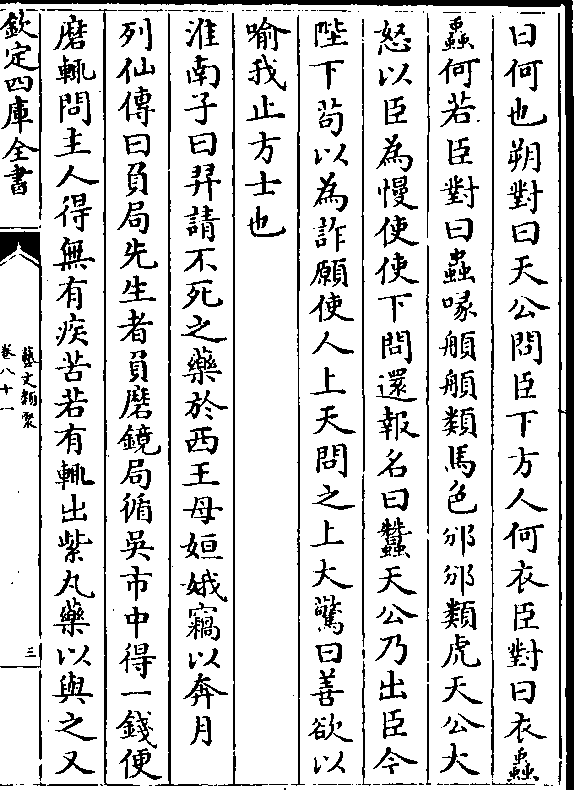 曰何也朔對曰天公問臣下方人何衣臣對曰衣蟲
蟲何若臣對曰蟲喙䫇䫇類馬色邠邠類虎天公大
怒以臣為慢使使下問還報名曰蠶天公乃出臣今
陛下苟以為詐願使人上天問之上大驚曰善欲以
喻我止方士也
淮南子曰羿請不死之藥於西王母姮娥竊以奔月
列仙傳曰負局先生者負磨鏡局循吳市中得一錢便
磨輒問主人得無有疾苦若有輒出紫丸藥以與之又
欽定四庫全書
藝文類聚
卷八十一
三